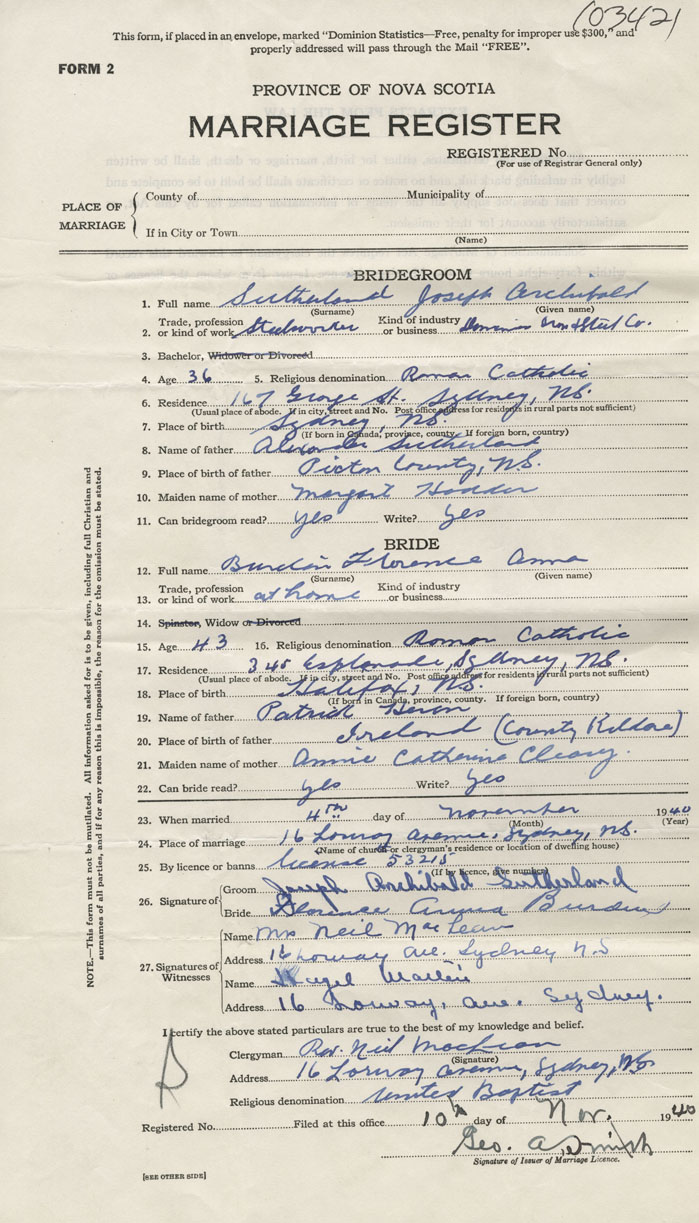 (03421
This form, if placed in an envelope, marked "Dominion Statistics—Free, penalty for improper use $300," and
properly addressed will pass through the Mail "FREE".
FORM 2
PROVINCE OF NOVA SCOTIA
MARRIAGE REGISTER
REGISTERED No.
(For use of Registrar General only)
PLACE OF MARRIAGE
County of Municipality of
If in City or Town
(Name)
BRIDEGROOM
1. Full name Sutherland Joseph Archibald
(Surname) (Given name)
2. Trade, profession or kind of work Steelworker Kind of industry or business Dominion Iron & Steel Co.
3. Bachelor, Widower or Divorced
4. Age 36 5. Religious denomination Roman Catholic
6. Residence 167 George St. Sydney, NS.
(Usual place of abode. If in city, street and No. Post office address for residents in rural parts not sufficient)
7. Place of birth Sydney, NS.
(If born in Canada, province, county. If foreign born, country)
8. Name of father Alexander Sutherland
9. Place of birth of father Pictou County, NS.
10. Maiden name of mother Margaret Hodder
11. Can bridegroom read? Yes Write? Yes
BRIDE
12. Full name Burdin Florence Anna
(Surname) (Given name)
13. Trade, profession or kind of work at home Kind of industry or business
14. Spinster, Widow or Divorced
15. Age 43 16. Religious denomination Roman Catholic
17. Residence 345 Esplanade, Sydney, NS.
(Usual place of abode. If in city, street and No. Post office address for residents in rural parts not sufficient)
18. Place of birth Halifax, NS.
(If born in Canada, province, county. If foreign born, country)
19. Name of father Patrick
20. Place of birth of father Ireland (County Kildare)
21. Maiden name of mother Annie Catherine Cleary.
22. Can bride read? Yes Write? Yes
23. When married 4th day of November 1940
(Month) (Year)
24. Place of marriage 16 Lorway Avenue, Sydney, NS.
(Name of church or clergyman's residence or location of dwelling house)
25. By licence or banns license 53215
(If by licence, give number)
26. Signature of
Groom Joseph Archibald Sutherland
Bride Florence Anna Burdin
27. Signatures of Witnesses
Name Mrs Neil MacLean
Address 16 Lorway Ave. Sydney N S
Name Hazel
Address 16 Lorway, Ave. Sydney.
I certify the above stated particulars are true to the best of my knowledge and belief.
Clergyman Rev. Neil MacLean
(Signature)
Address 16 Lorway Avenue, Sydney, NS.
Religious denomination United Baptist
Registered No. Filed at this office 10th day of Nov. 1940
Geo. A. Smith
Signature of Issuer of Marriage Licence.
[SEE OTHER SIDE]
NOTE.—This form must not be mutilated. All information asked for is to be given, including full Christian and
surnames of all parties, and if for any reason this is impossible, the reason for the omission must be stated.